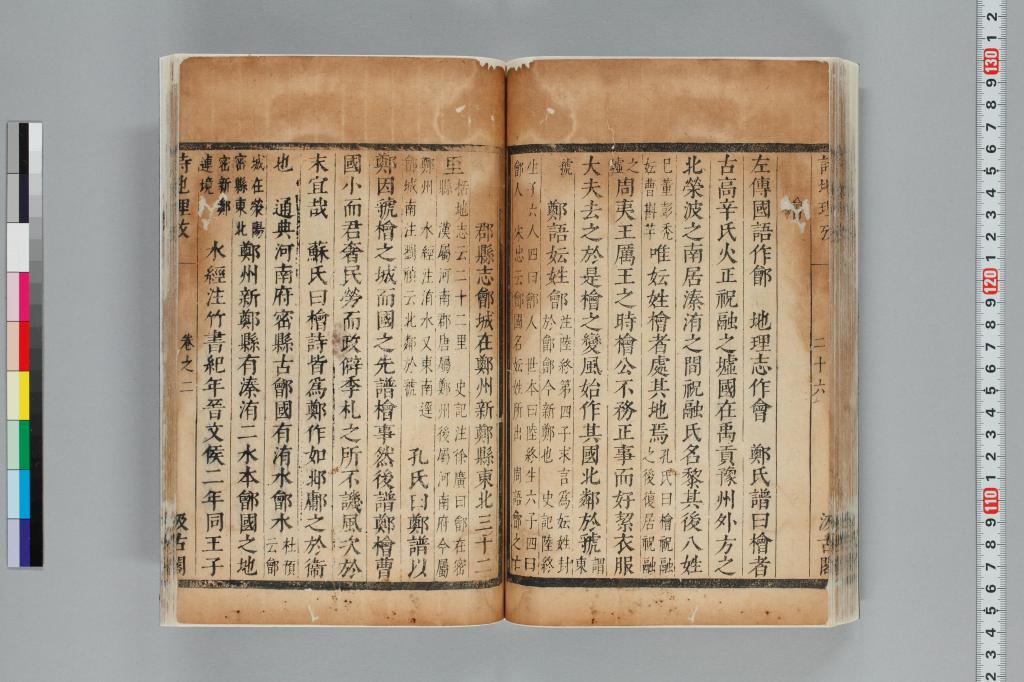 檜
左傳國語作鄶　地理志作會　鄭氏譜曰檜者
古高辛氏火正祝融之墟國在禹貢豫州外方之
北滎波之南居溱洧之間祝融氏名黎其後八姓
己董彭禿
妘曹斟芈
唯妘姓檜者處其地焉
孔氏曰檜祝融
之後復居祝融
之
墟
周夷王厲王之時檜公不務正事而好絜衣服
大夫去之於是檜之變風始作其國北鄰於虢
謂
東
虢
鄭語妘姓鄶
注陸終第四子求言爲妘姓封
於鄶鄶今新鄭也　史記陸終
生子六人四曰鄶人　世本曰陸終生六子四曰
鄶人　宋忠云鄶國名妘姓所出　周語鄶之亡
郡縣志鄶城在鄭州新鄭縣東北三十二
里
括地志云二十二里　史記注徐廣曰鄶在密
縣　漢屬河南郡唐屬鄭州後屬河南府今屬
鄭州　水經注洧水又東南逕
鄶城南注劉楨云北鄰於虢
孔氏曰鄭譜以
鄭因虢檜之城而國之先譜檜事然後譜鄭檜曹
國小而君奢民勞而政僻季札之所不譏風次於
末宜哉　蘇氏曰檜詩皆爲鄭作如邶鄘之於衞
也　通典河南府密縣古鄶國有洧水鄶水
杜預
云鄶
城在滎陽
密縣東北
鄭州新鄭縣有溱洧二水本鄶國之地
密新鄭
連境
水經注竹書紀年晉文侯二年同王子
詩地理攷
二十六
汲古閣
詩地理攷
卷之二
汲古閣